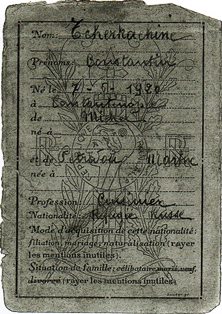 Nom: Tcherkachine
Prénoms: Constantin
Né le 17 - 5 - 1920
à Constantinople
de Michel
né à
et de Marie
née à
Profession: Cuisinier
Nationalité: Réfugié Russe
Mode d'acquisition de cette nationalité:
filiation, mariage, naturalisation (rayer
les mentions inutiles).
Situation de famille: célibataire, marié, veuf,
divorcé (rayer les mentions inutiles)